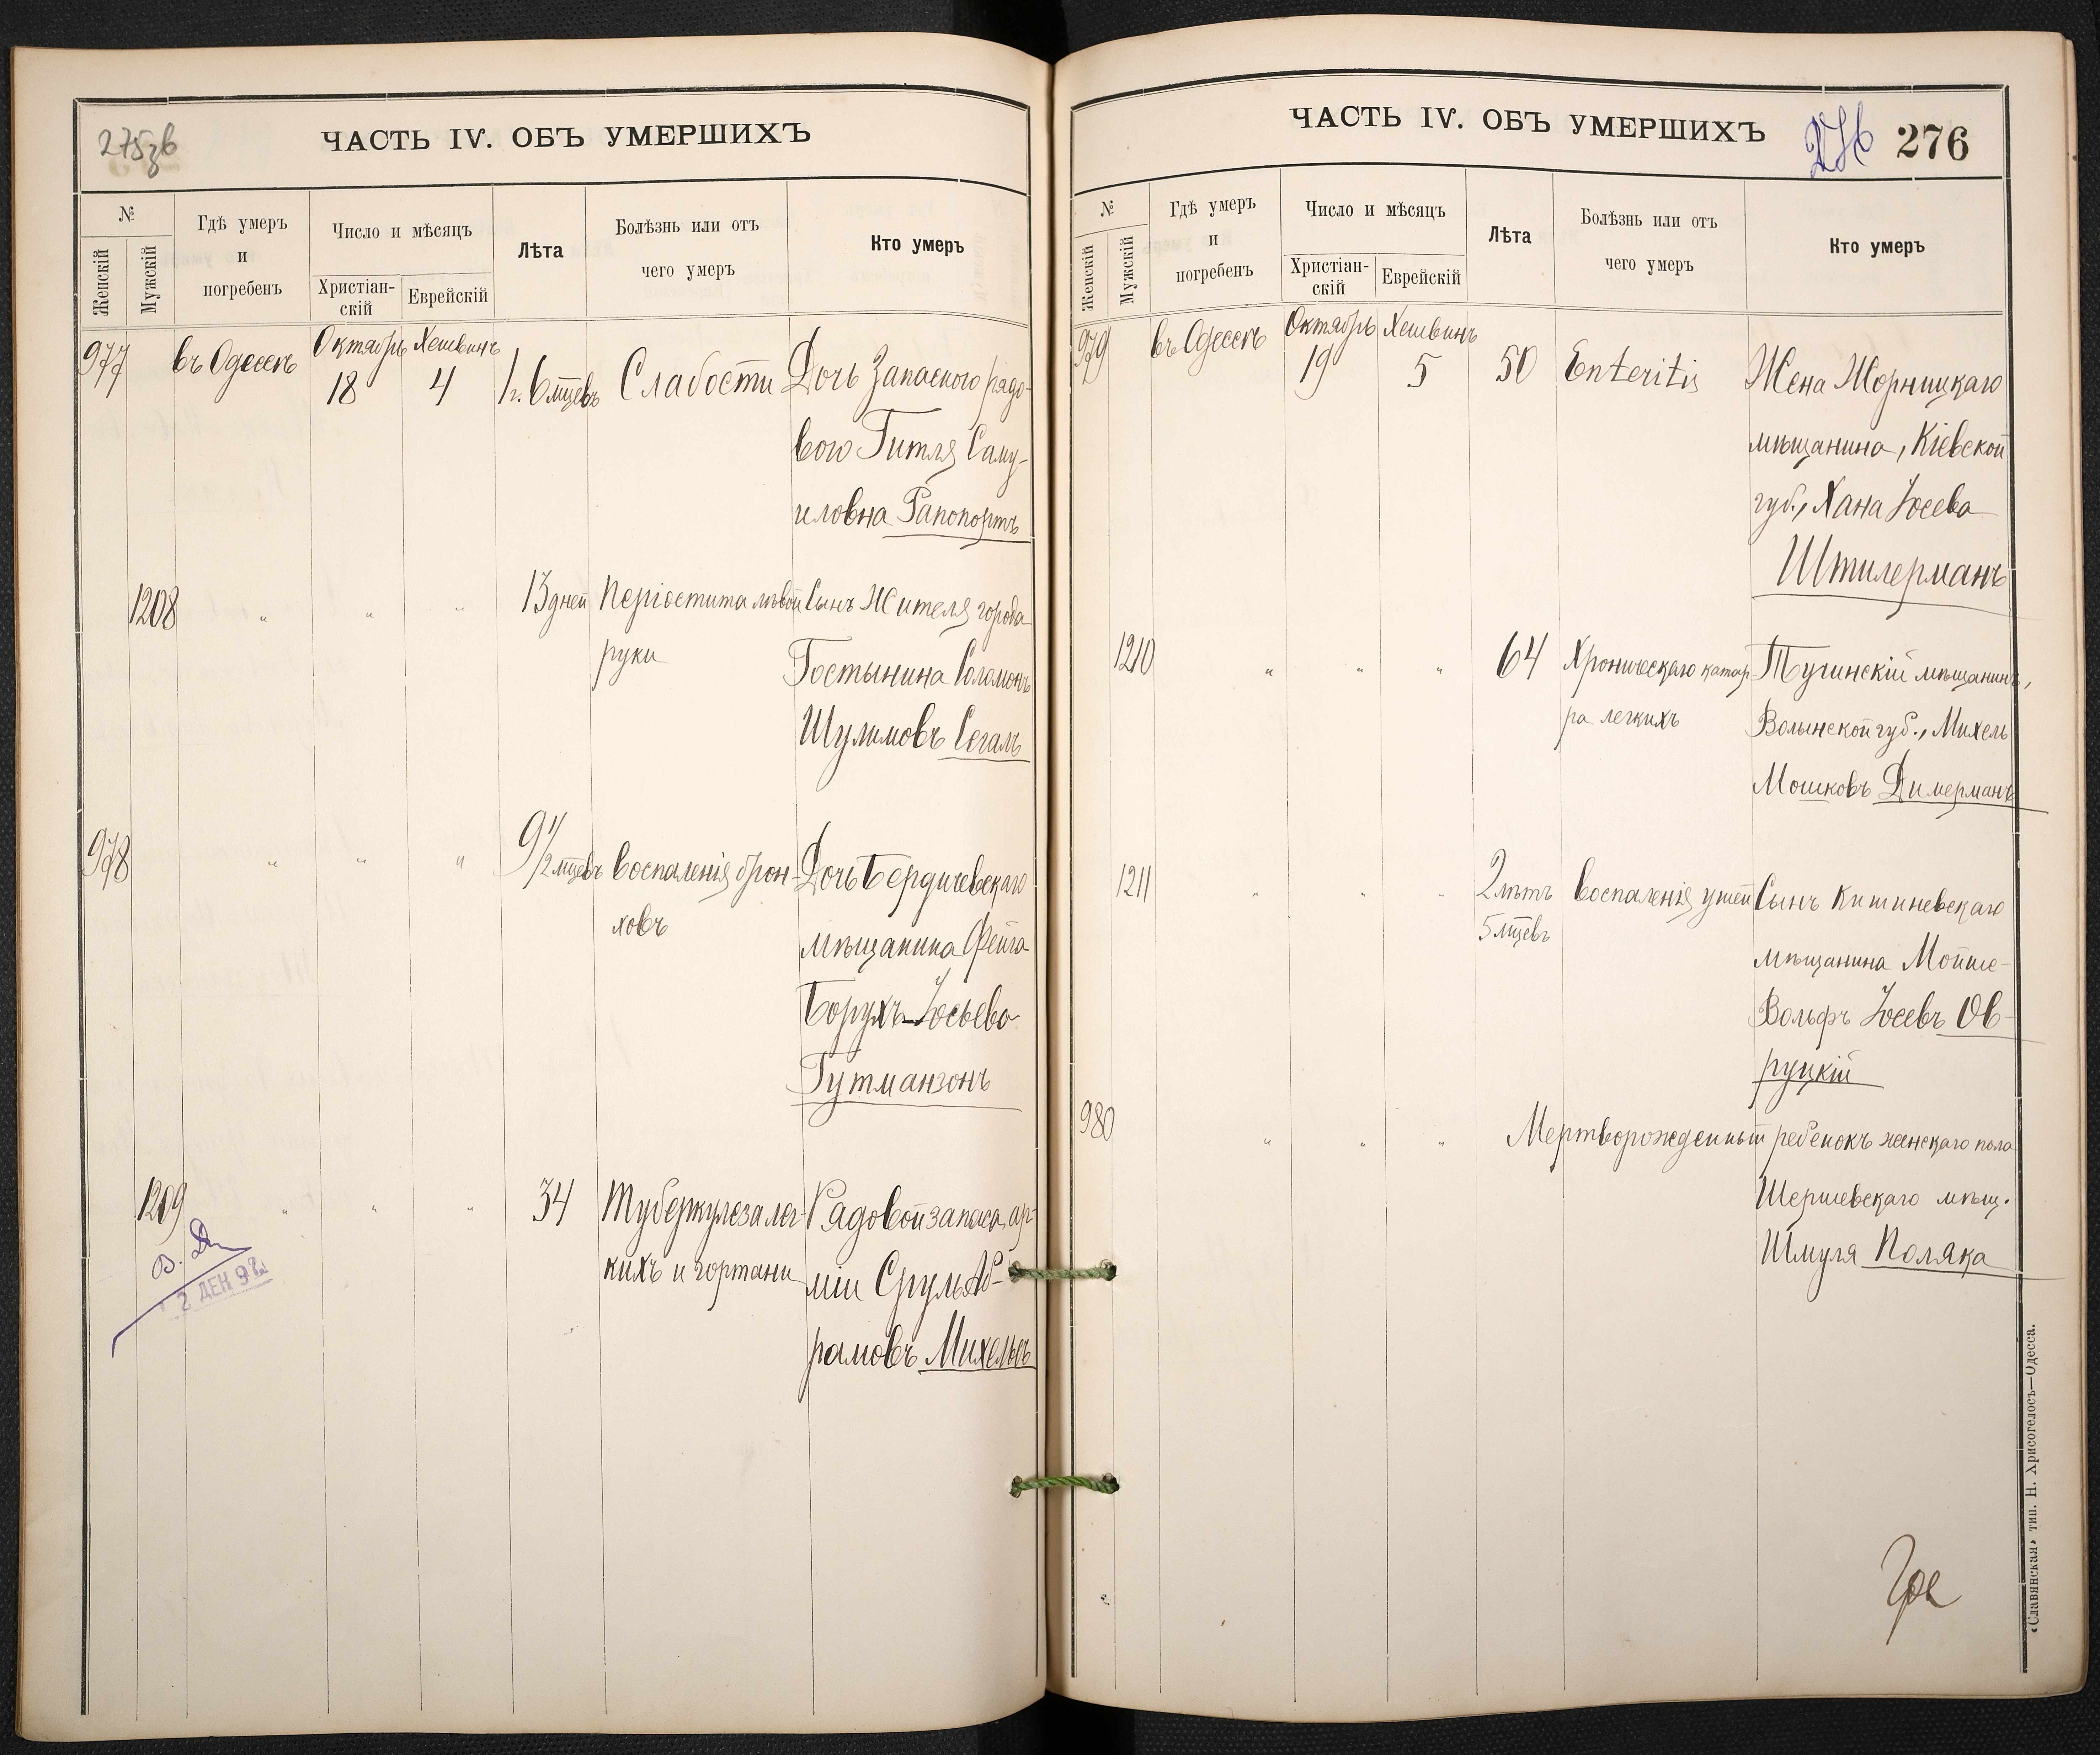 275зв
ЧАСТЬ IV. ОБЪ УМЕРШИХЪ
№
Женскій
Мужскій
Гдѣ умеръ
и
погребенъ
Число и мѣсяцъ
Христіан-
скій
Еврейскій
Лѣта
Болѣзнь или отъ
чего умеръ
Кто умеръ
977 въ Одессѣ Октябрь 18 Хешвинъ 4 1 г. 6 мцевъ Слабости Дочь Запасного рядо-
вого Гитля Саму-
иловна Рапопортъ
1208 " " " 13 дней Періостита лѣвой Сынъ Жителя города
руки Гостынина Соломонъ
Шулимовъ Сегалъ
978 " " " 9 1/2 мцевъ Воспаленія брон- Дочь Бердичевскаго
ховъ мѣщанина Фейга-
Борухъ-Іосьева
Гутманзонъ
1209 " " " 34 Туберкулеза лег- Рядовой запаса ар-
кихъ и гортани міи Сруль Аб-
рамовъ Михельсъ
2 ДЕК 92
ЧАСТЬ IV. ОБЪ УМЕРШИХЪ
276 276
№
Женскій
Мужскій
Гдѣ умеръ
и
погребенъ
Число и мѣсяцъ
Христіан-
скій
Еврейскій
Лѣта
Болѣзнь или отъ
чего умеръ
Кто умеръ
979 въ Одессѣ Октябрь 19 Хешвинъ 5 50 Enteritis Жена Жорницкаго
мѣщанина, Кіевской
губ., Хана Іосева
Штилерманъ
1210 " " " 64 Хроническаго катар- Тучинскій мѣщанинъ,
ра легкихъ Волынской губ., Михель
Мошковъ Димерманъ
1211 " " " 2 лѣтъ Воспаленія ушей Сынъ Кишиневскаго
5 мцевъ мѣщанина Мойше-
Вольфъ Іосевъ Ов-
руцкій
980 " " " Мертворожденный ребенокъ женскаго пола
Шершевскаго мѣщ.
Шмуля Поляка
«Славянская» тип. Н. Хрисогелосъ—Одесса.